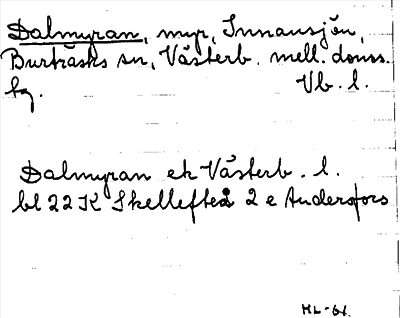 Dalmyran, myr, Innansjön,
Burträsks sn, Västerb. mell. doms.
fg. Vb. l.
Dalmyran ek Västerb. l.
bl 22 K Skellefteå 2 e Andersfors
HL-61.